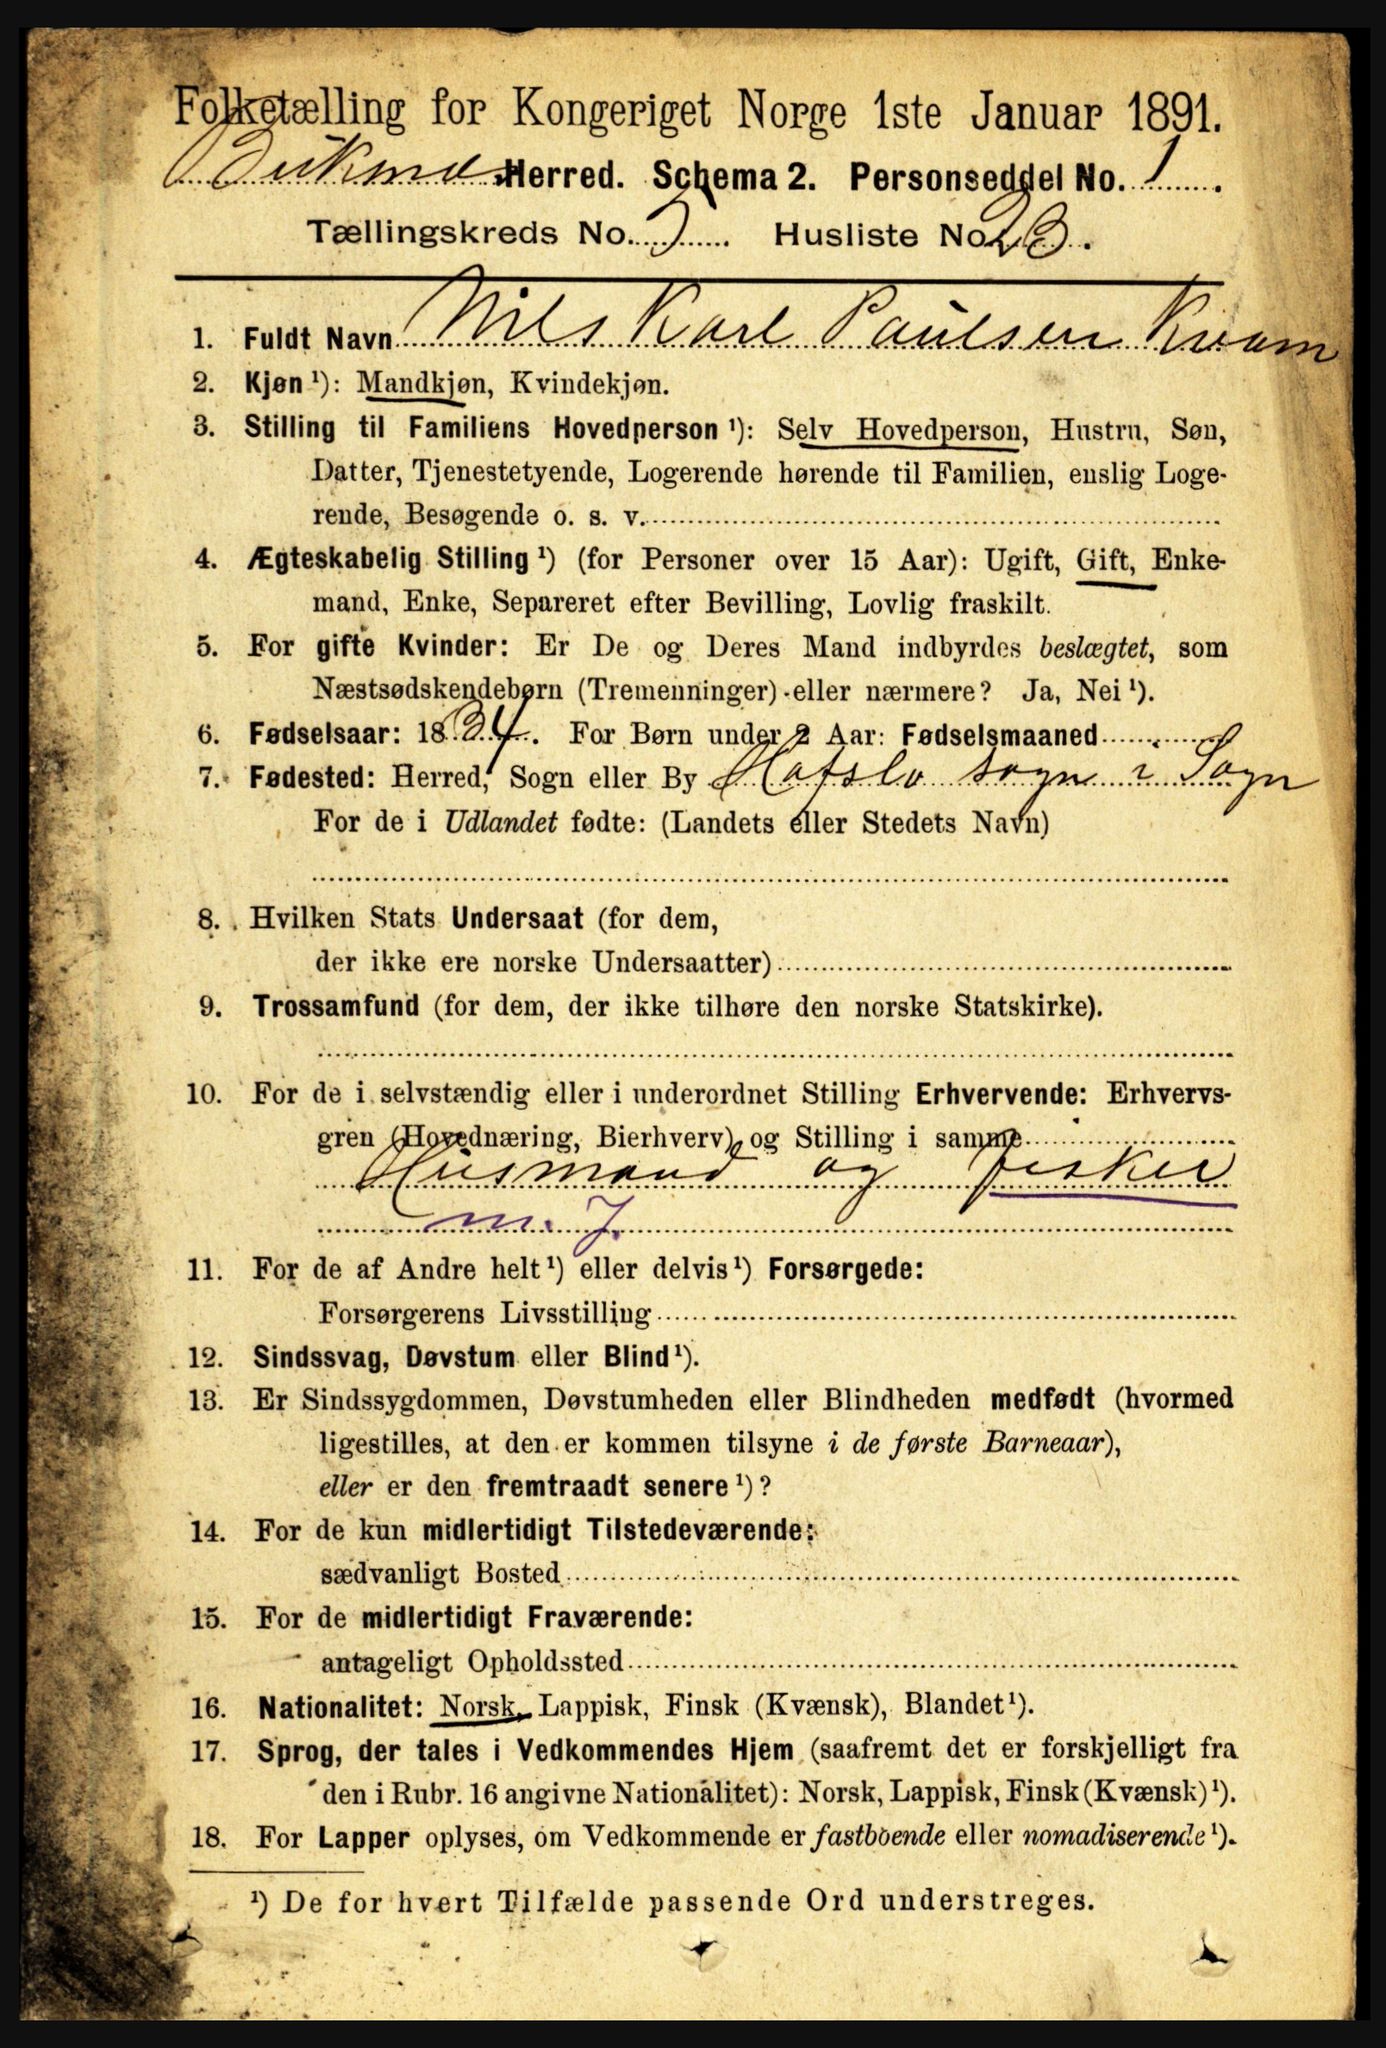 Folketælling for Kongeriget Norge 1ste Januar 1891.
Herred. Schema 2. Personseddel No. 1.
Tællingskreds No. Husliste No. 23.
1. Fuldt Navn Nils Karl Paulsen Kvam
2. Kjøn ¹): Mandkjøn, Kvindekjøn.
3. Stilling til Familiens Hovedperson ¹): Selv Hovedperson, Hustru, Søn,
Datter, Tjenestetyende, Logerende hørende til Familien, enslig Loge-
rende, Besøgende o. s. v.
4. Ægteskabelig Stilling ¹) (for Personer over 15 Aar): Ugift, Gift, Enke-
mand, Enke, Separeret efter Bevilling, Lovlig fraskilt.
5. For gifte Kvinder: Er De og Deres Mand indbyrdes beslægtet, som
Næstsødskendebørn (Tremenninger) eller nærmere? Ja, Nei ¹).
6. Fødselsaar: 1834. For Børn under 2 Aar: Fødselsmaaned
7. Fødested: Herred, Sogn eller By Hafslo sogn i Sogn
For de i Udlandet fødte: (Landets eller Stedets Navn)
8. Hvilken Stats Undersaat (for dem,
der ikke ere norske Undersaatter)
9. Trossamfund (for dem, der ikke tilhøre den norske Statskirke).
10. For de i selvstændig eller i underordnet Stilling Erhvervende: Erhvervs-
gren (Hovednæring, Bierhverv) og Stilling i samme
Husmand og fisker
m. J.
11. For de af Andre helt ¹) eller delvis ¹) Forsørgede:
Forsørgerens Livsstilling
12. Sindssvag, Døvstum eller Blind ¹).
13. Er Sindssygdommen, Døvstumheden eller Blindheden medfødt (hvormed
ligestilles, at den er kommen tilsyne i de første Barneaar),
eller er den fremtraadt senere ¹)?
14. For de kun midlertidigt Tilstedeværende:
sædvanligt Bosted
15. For de midlertidigt Fraværende:
antageligt Opholdssted
16. Nationalitet: Norsk, Lappisk, Finsk (Kvænsk), Blandet ¹).
17. Sprog, der tales i Vedkommendes Hjem (saafremt det er forskjelligt fra
den i Rubr. 16 angivne Nationalitet): Norsk, Lappisk, Finsk (Kvænsk) ¹).
18. For Lapper oplyses, om Vedkommende er fastboende eller nomadiserende ¹).
¹) De for hvert Tilfælde passende Ord understreges.